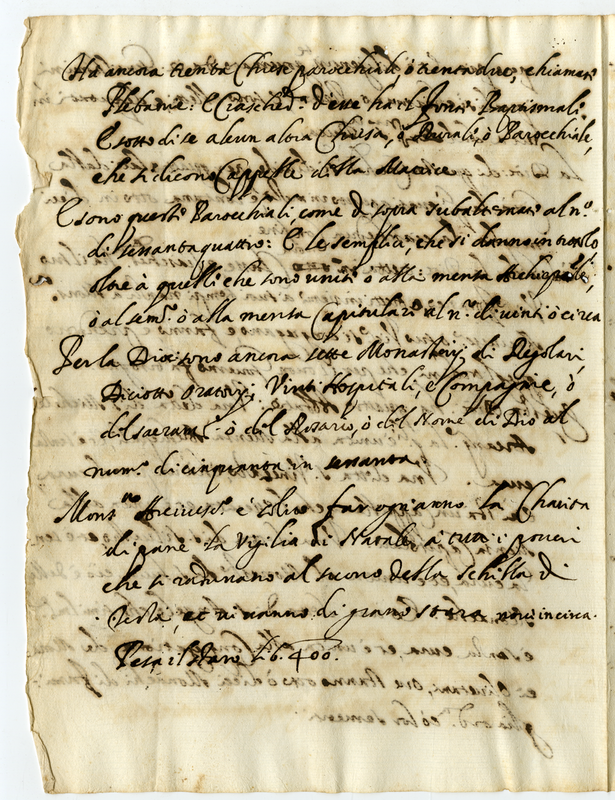 Ha ancora trenta Chiese parochiali, o trenta due, chiamate
Plebane: E Ciasched.ª d'esse ha il fonte Baptismale
E sotto di se alcun altra Chiesa, ò Rurale, ò Parochiale,
che si dicono Cappelle della Matrice
E sono questi Parochiali, come di sopra subalternati al n.º
di sessantaquattro: E le semplici, che si danno in titolo
oltre à quelli che sono uniti o alla mensa Archiepāle,
ò al sem.º ò alla mensa Capitulare al n.º di vinti ò circa
Per la Dioc. sono ancora sette Monasterij di Regolari,
Diciotto Oratorij, Vinti Hospitali, e Compagnie, ò
del sacram.º ò del Rosario, ò del Nome di Dio al
num.º di cinquanta in sessanta
Mons.r Arcivesc.º è solito far ogn'anno la Charità
di pane la Vigilia di Natale à tutti i poveri
che si radunano al suono della schilla di
festa, et vi vanno di grano stara in circa.
Pesa il staro Lb. 400.